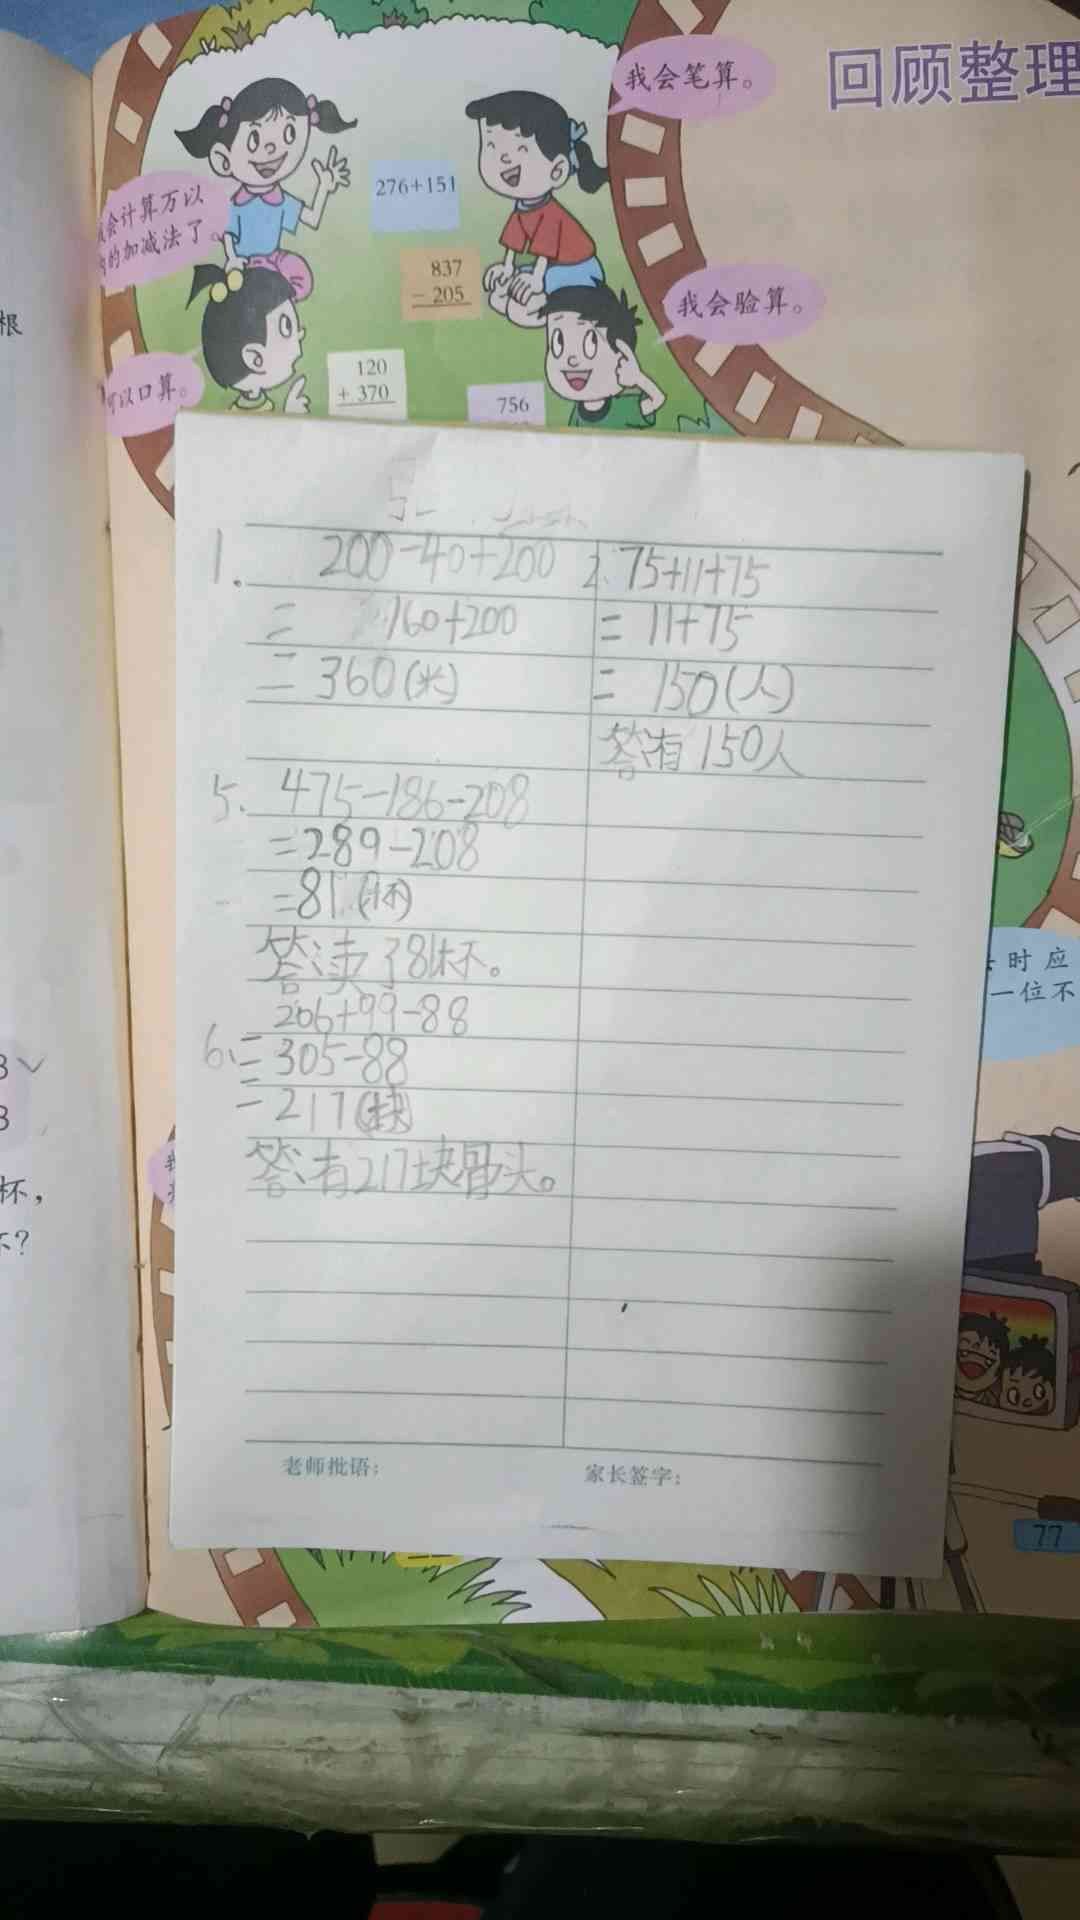 回顾整理
我会笔算。
276+151
会计算万以
的加减法了。
837
- 205
我会验算。
120
+ 370
可以口算。
756
根
1. 200-40+200
= 160+200
= 360(米)
2. 75+11+75
= 11+75
= 150(人)
答:有150人
5. 475-186-208
=289-208
=81(杯)
答:卖了81杯。
206+99-88
6. =305-88
=217(块)
答:有217块骨头。
时应
一位不
3
3
杯,
?
老师批语:
家长签字:
77